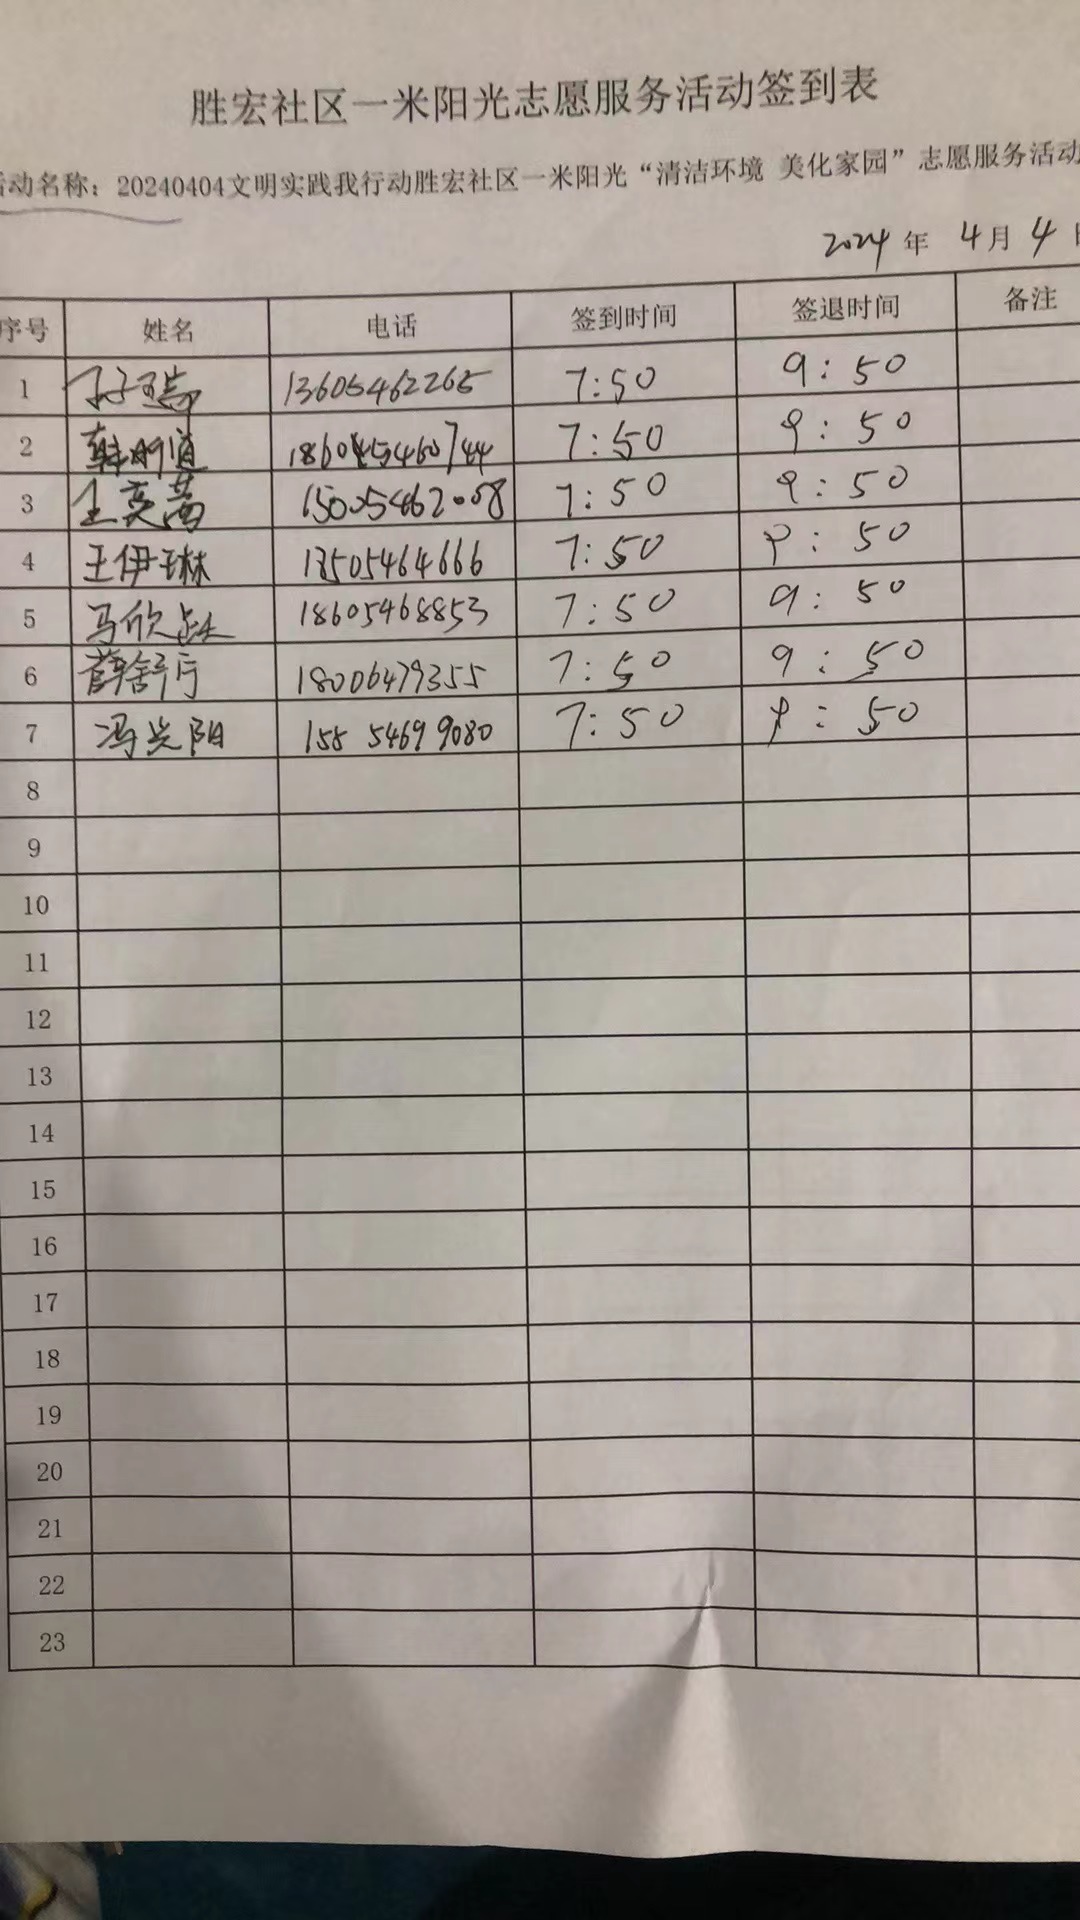 胜宏社区一米阳光志愿服务活动签到表
活动名称：20240404文明实践我行动胜宏社区一米阳光“清洁环境 美化家园”志愿服务活动
2024年 4月4日
序号 姓名 电话 签到时间 签退时间 备注
1 孙瑞 13605462265 7:50 9:50
2 韩明道 7:50 9:50
3 王奕茜 15005462008 7:50 9:50
4 王伊琳 13505464666 7:50 9:50
5 马欣 18605468853 7:50 9:50
6 薛舒亓 18006479355 7:50 9:50
7 冯岩阳 155 5469 9080 7:50 9:50
8
9
10
11
12
13
14
15
16
17
18
19
20
21
22
23